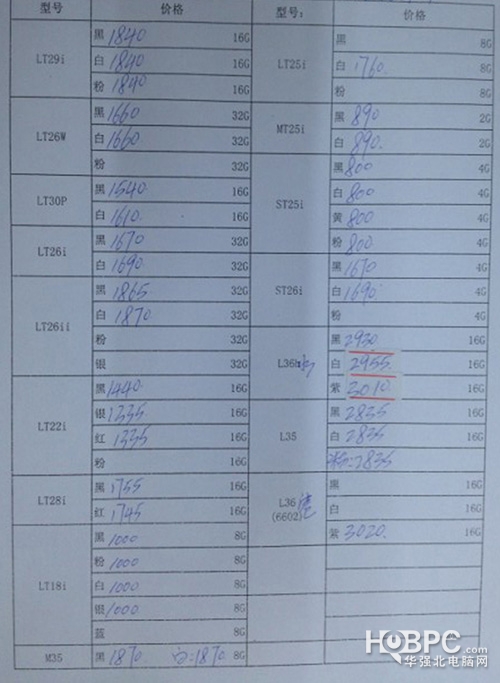 型号 价格 型号: 价格
LT29i
黑 1840 16G
白 1840 16G
粉 1840 16G
LT26W
黑 1660 32G
白 1660 32G
粉 32G
LT30P
黑 1540 16G
白 1610. 16G
LT26i
黑 1670 32G
白 1690. 32G
LT26ii
黑 1865 32G
白 1870 32G
粉 32G
银 32G
LT22i
黑 1440 16G
银 1335 16G
红 1335 16G
粉 16G
LT28i
黑 1755 16G
红 1745 16G
LT18i
黑 1000 8G
粉 1000 8G
白 1000 8G
银 1000 8G
蓝 8G
M35
黑 1870. 白:1870 8G
LT25i
黑 8G
白 1760. 8G
粉 8G
MT25i
黑 890 2G
白 890. 2G
ST25i
黑 800 4G
白 800 4G
黄 800 4G
粉 800 4G
ST26i
黑 1670 4G
白 1690. 4G
粉 4G
L36h
黑 2930 16G
白 2955 16G
紫 3010 16G
L35
黑 2835 16G
白 2835 16G
2835
L36
(6602)
黑 16G
白 16G
紫 3020. 16G
HQBPC.com
华强北电脑网